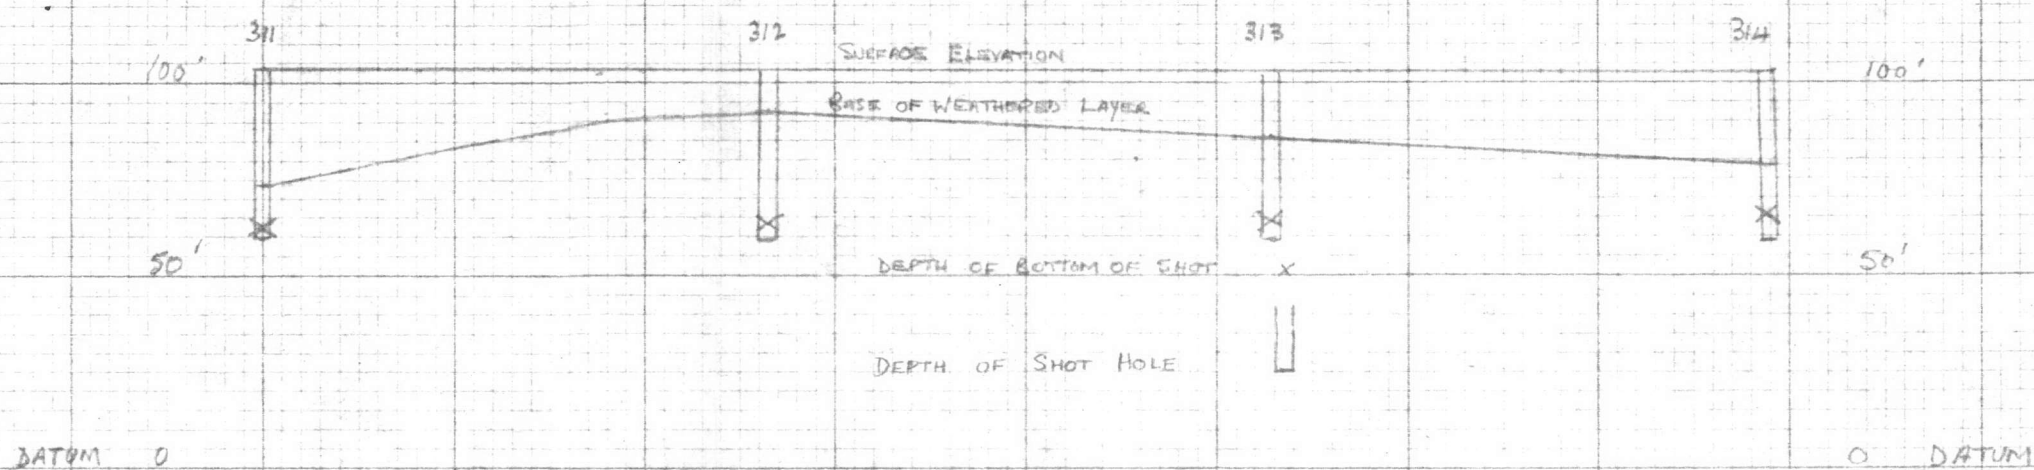 311 312 313 314
SURFACE ELEVATION
100' 100'
BASE OF WEATHERED LAYER
50' 50'
DEPTH OF BOTTOM OF SHOT x
DEPTH OF SHOT HOLE
DATUM 0 0 DATUM